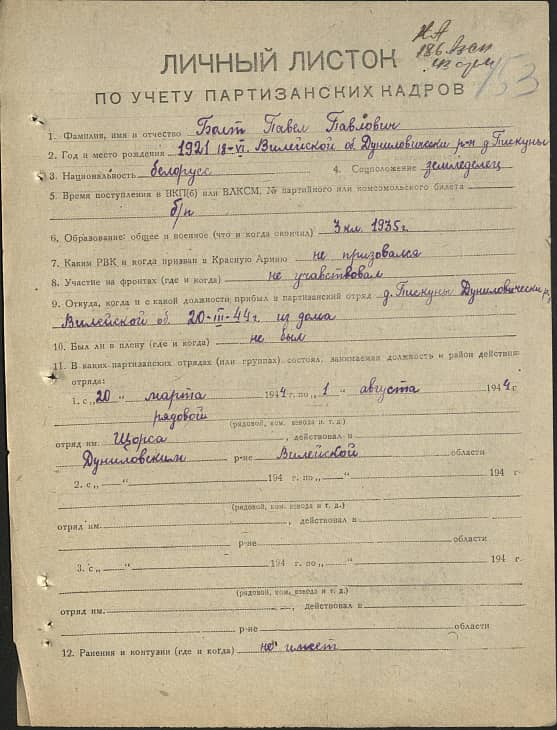 КА
186 зсп
153
ЛИЧНЫЙ ЛИСТОК
ПО УЧЕТУ ПАРТИЗАНСКИХ КАДРОВ
1. Фамилия, имя и отчество Болт Павел Павлович
2. Год и место рождения 1921 18-VI. Вилейской об Дуниловически р-н д Пискуны
3. Национальность белорусс 4. Соцположение земледелец
5. Время поступления в ВКП(б) или ВЛКСМ, № партийного или комсомольского билета
б/п
6. Образование: общее и военное (что и когда окончил) 3 кл. 1935г.
7. Каким РВК и когда призван в Красную Армию не призовался
8. Участие на фронтах (где и когда) не учавствовал
9. Откуда, когда и с какой должности прибыл в партизанский отряд д. Пискуны Дуниловически р,
Вилейской об. 20-III-44г. из дома
10. Был ли в плену (где и когда) не был
11. В каких партизанских отрядах (или группах) состоял, занимаемая должность и район действия
отряда:
1. с „20“ марта 1944 г. по „1“ августа 1944 г
рядовой
(рядовой, ком. взвода и т. д.)
отряд им. Щорса, действовал в
Дуниловским р-не Вилейской области
2. с „ “ 194 г. по „ “ 194 г.
(рядовой, ком. взвода и т. д.)
отряд им. , действовал в
р-не области
3. с „ “ 194 г. по „ “ 194 г.
(рядовой, ком. взвода и т. д.)
отряд им. , действовал в
р-не области
12. Ранения и контузии (где и когда) не имеет